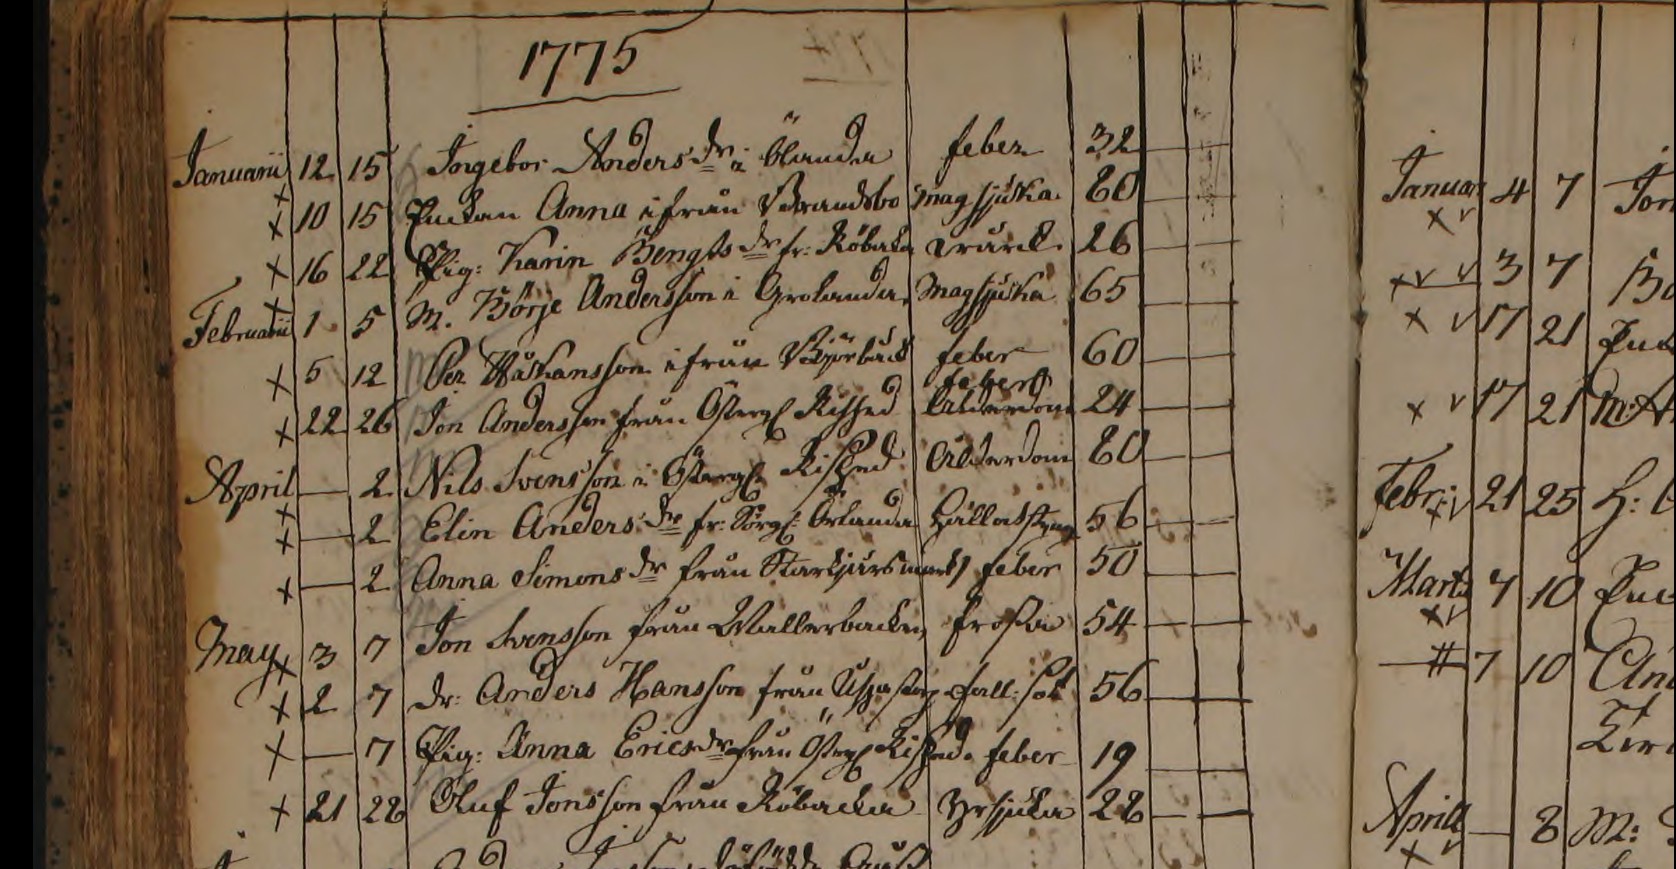 1775
Januarii 12 15 Ingebor Anders dr i Ölanda feber 32
x 10 15 Enckan Anna ifrån Brandsbo magsjuka 80
x 16 22 Pig: Karin Bengts dr fr: Röbacka 26
x
Februarii 1 5 M. Börje Andersson i Grolanda Magsjuka 65
x 5 12 Per Håkansson ifrån feber 60
feber
x 22 26 Jon Andersson från Österg Rished Ålderdom 24
April — 2 Nils Svensson i Österg Rished Ålderdom 80
x — 2 Elin Anders dr fr: Sörg: Örlanda 56
x — 2 Anna Simons dr från feber 50
May x 3 7 Jon Svensson från Wallerbacken frossa 54
x 2 7 dr: Anders Hansson från fall: sot 56
x — 7 Pig: Anna Erics dr från Österg Rished. feber 19
x 21 28 Oluf Jonsson från Röbacka 28
Januar 4 7 Jon
x v
x v v 3 7 Bo
x v 17 21 Enc
x v 17 21 M: A
Febr: x v 21 25 H:
Marti 7 10 Enc
x v
# 7 10 An
April — 8 M:
x v